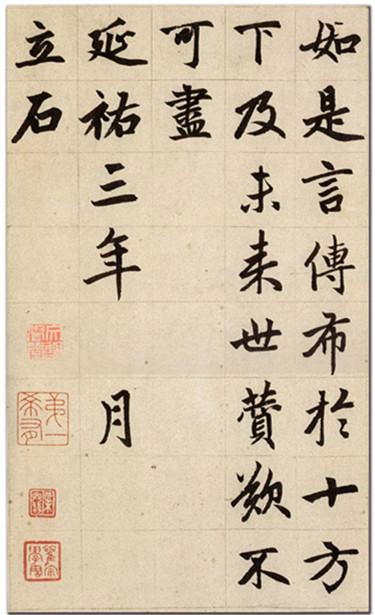 如是言傳布於十方
下及未来世賛歎不
可盡
延祐三年　月
立石